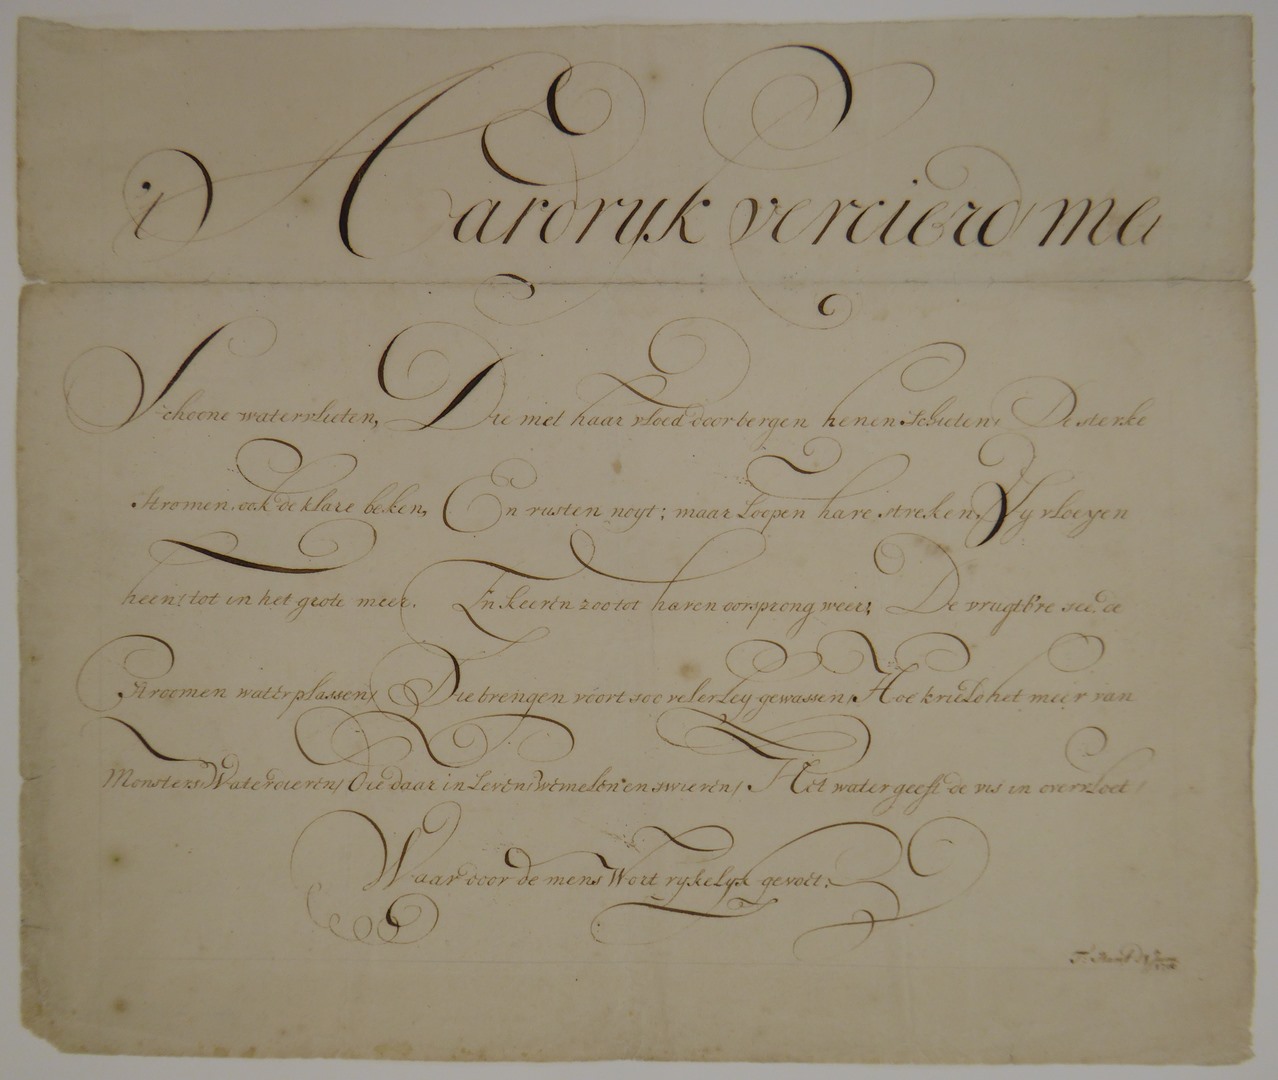 't Aardryk vercierd met
Schoone watervlieten, Die met haar vloed door bergen henen schieten, De sterke
stromen, ook de klare beken, En rusten noyt; maar loopen hare streken, Zy vloeyen
heen: tot in het grote meer. En keeren zoo tot haren oorsprong weer; De vrugtb're zeé, de
Stroomen waterplassen, Die brengen voort soo velerley gewassen, Hoe krield het meer van
Monsters, Waterdieren, Die daar in Leven, wemelen en swieren, Het water geeft de vis in overvloet,
Waar door de mens Wort rykelyk gevoet.